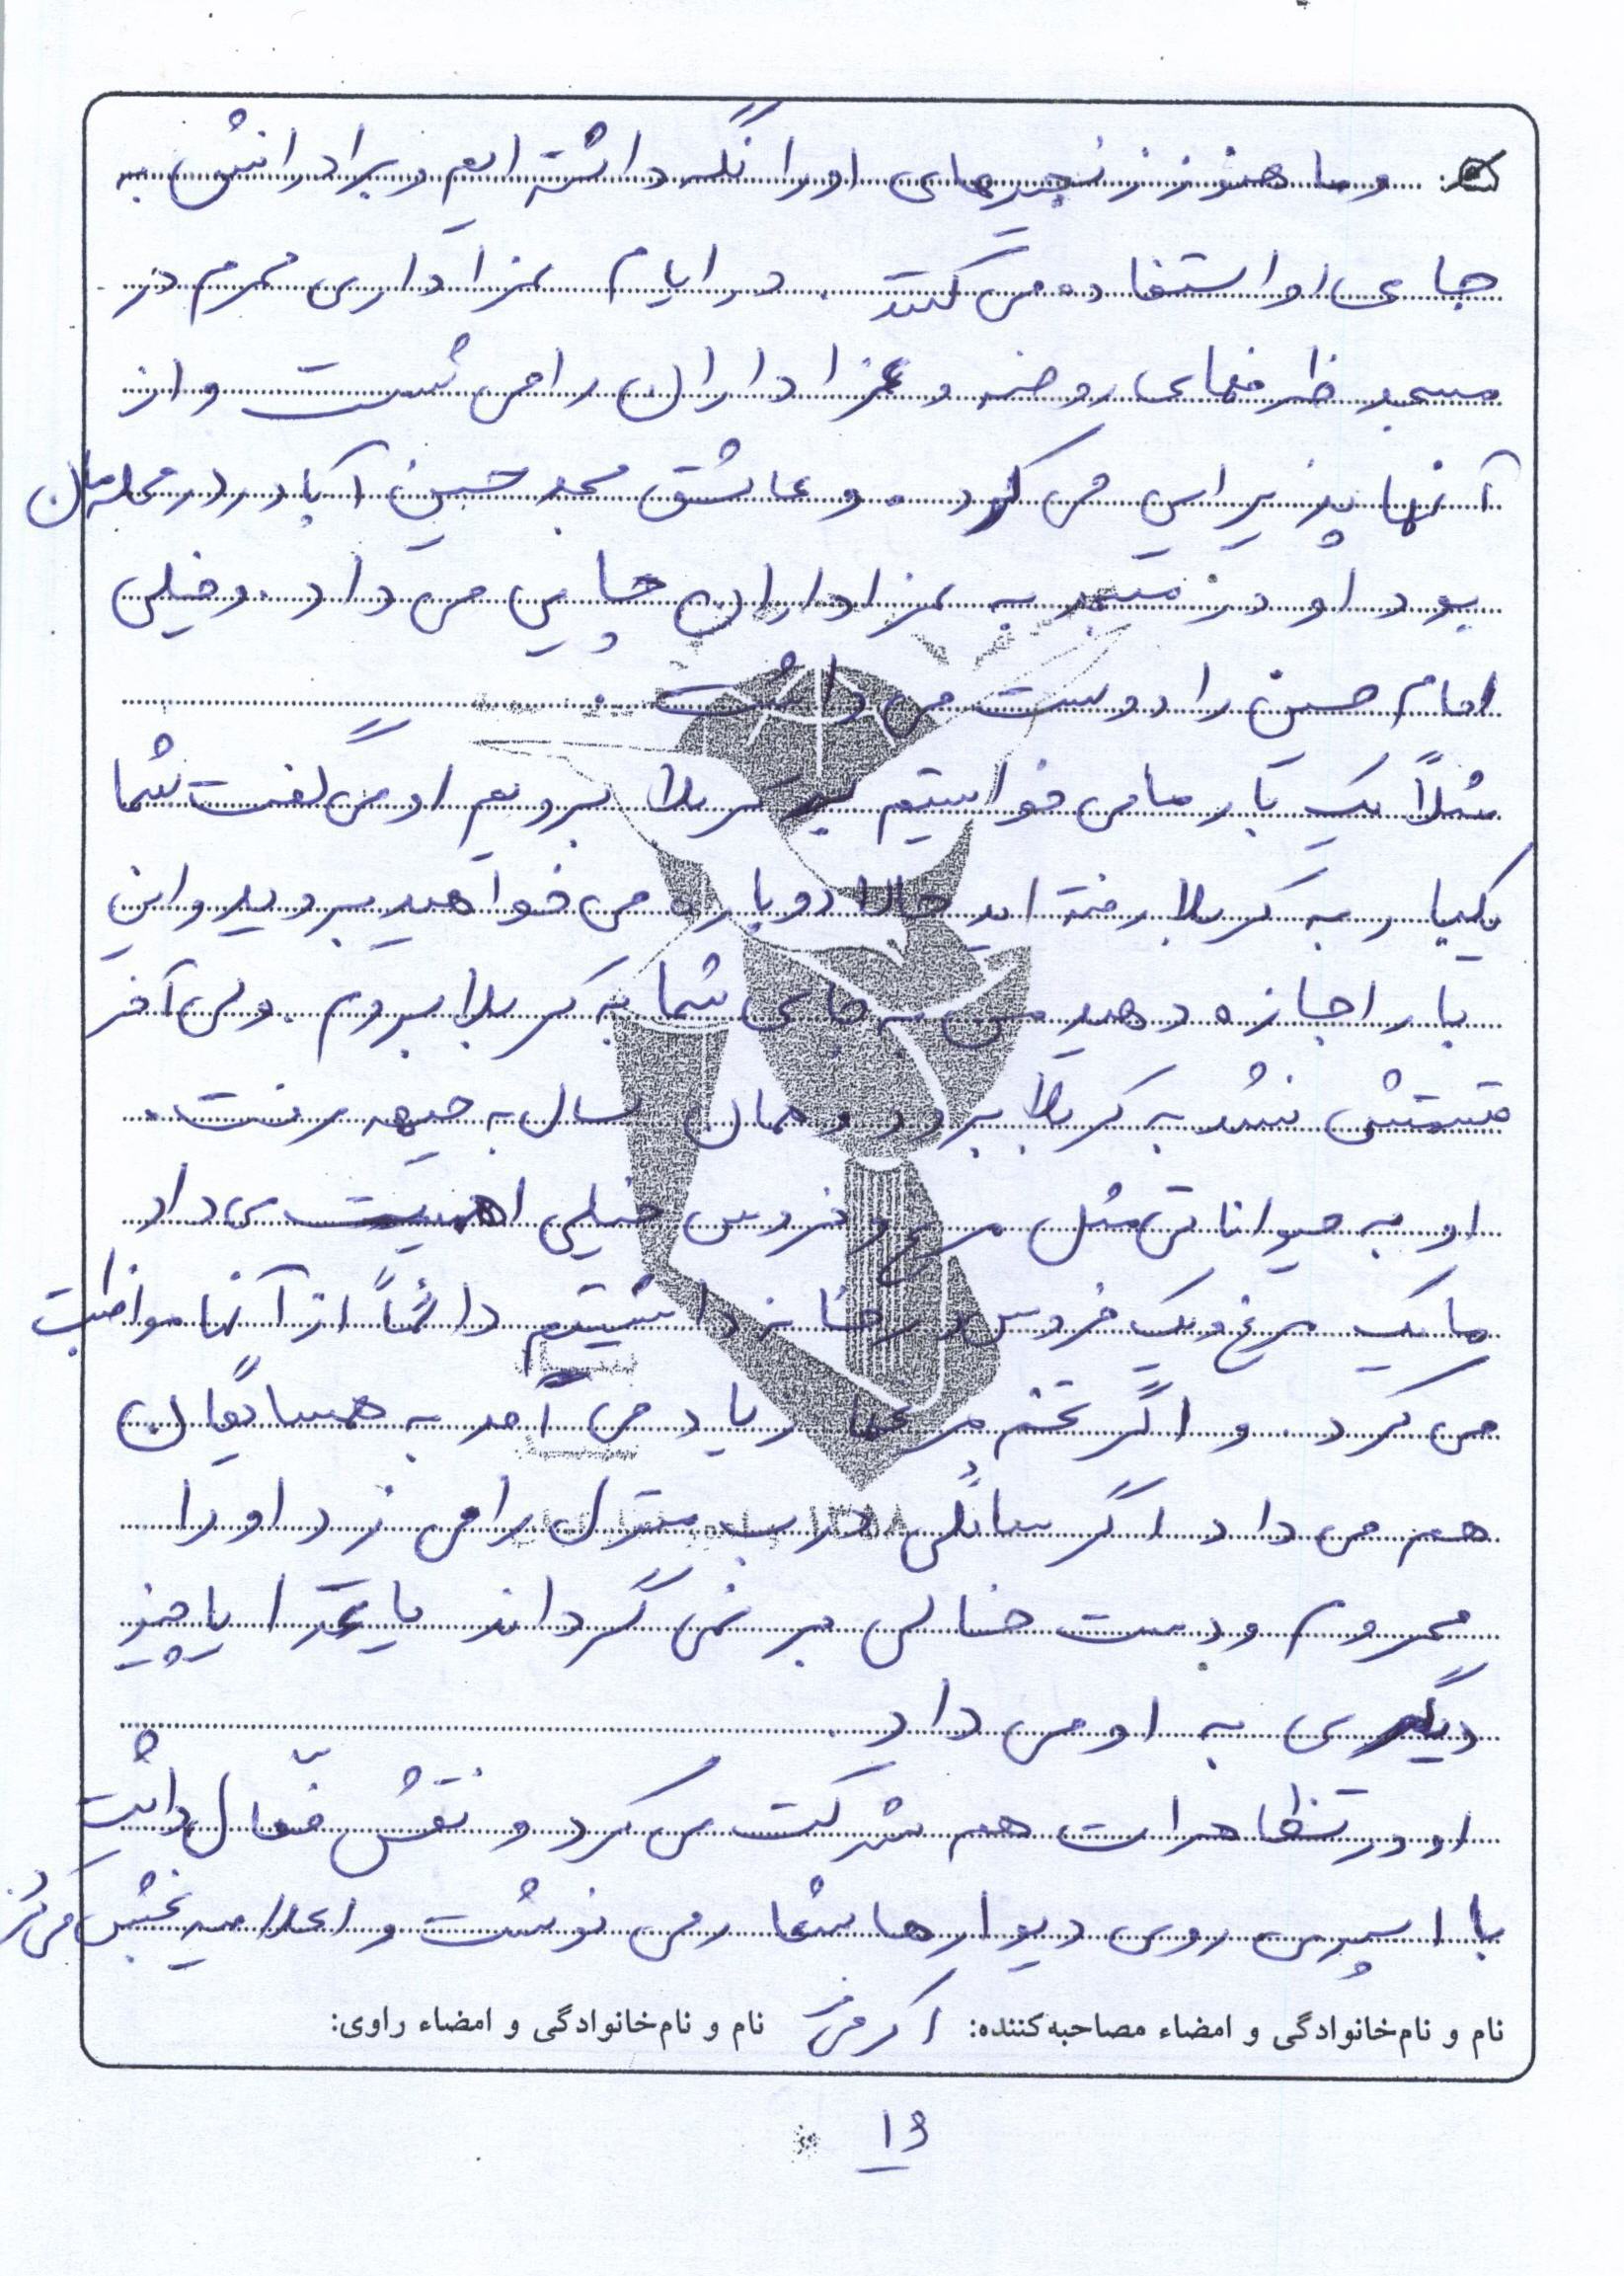 و ما هنوز زنجیرهای او را نگه داشته ایم و برادرانش به
جای او استفاده می کنند . در ایام عزاداری محرم در
مسجد ظرفهای روضه و عزاداران را می شست و از
آنها پذیرایی می کرد . و عاشق مسجد حسین آباد در محله مان
بود او در مسجد به عزاداران چایی می داد . و خیلی
امام حسین را دوست می داشت .
مثلاً یک بار ما می خواستیم به کربلا برویم او می گفت شما
یکبار به کربلا رفته اید حالا دوباره می خواهید بروید و این
بار اجازه دهید من به جای شما به کربلا بروم . ولی آخر
قسمتش نشد به کربلا برود و همان سال به جبهه رفت .
او به حیواناتی مثل مرغ و خروس خیلی اهمیت می داد
ما یک مرغ و یک خروس در خانه داشتیم دائماً از آنها مواظبت
می کرد . و اگر تخم مرغها زیاد می آمد به همسایگان
هم می داد اگر سائلی درب منزل را می زد او را
محروم و دست خالی بر نمی گرداند یا غذا یا چیز
دیگری به او می داد .
او در تظاهرات هم شرکت می کرد و نقش فعّال داشت
با اسپری روی دیوارها شعار می نوشت و اعلامیه پخش می کرد
نام و نام خانوادگی و امضاء مصاحبه کننده: نام و نام خانوادگی و امضاء راوی: